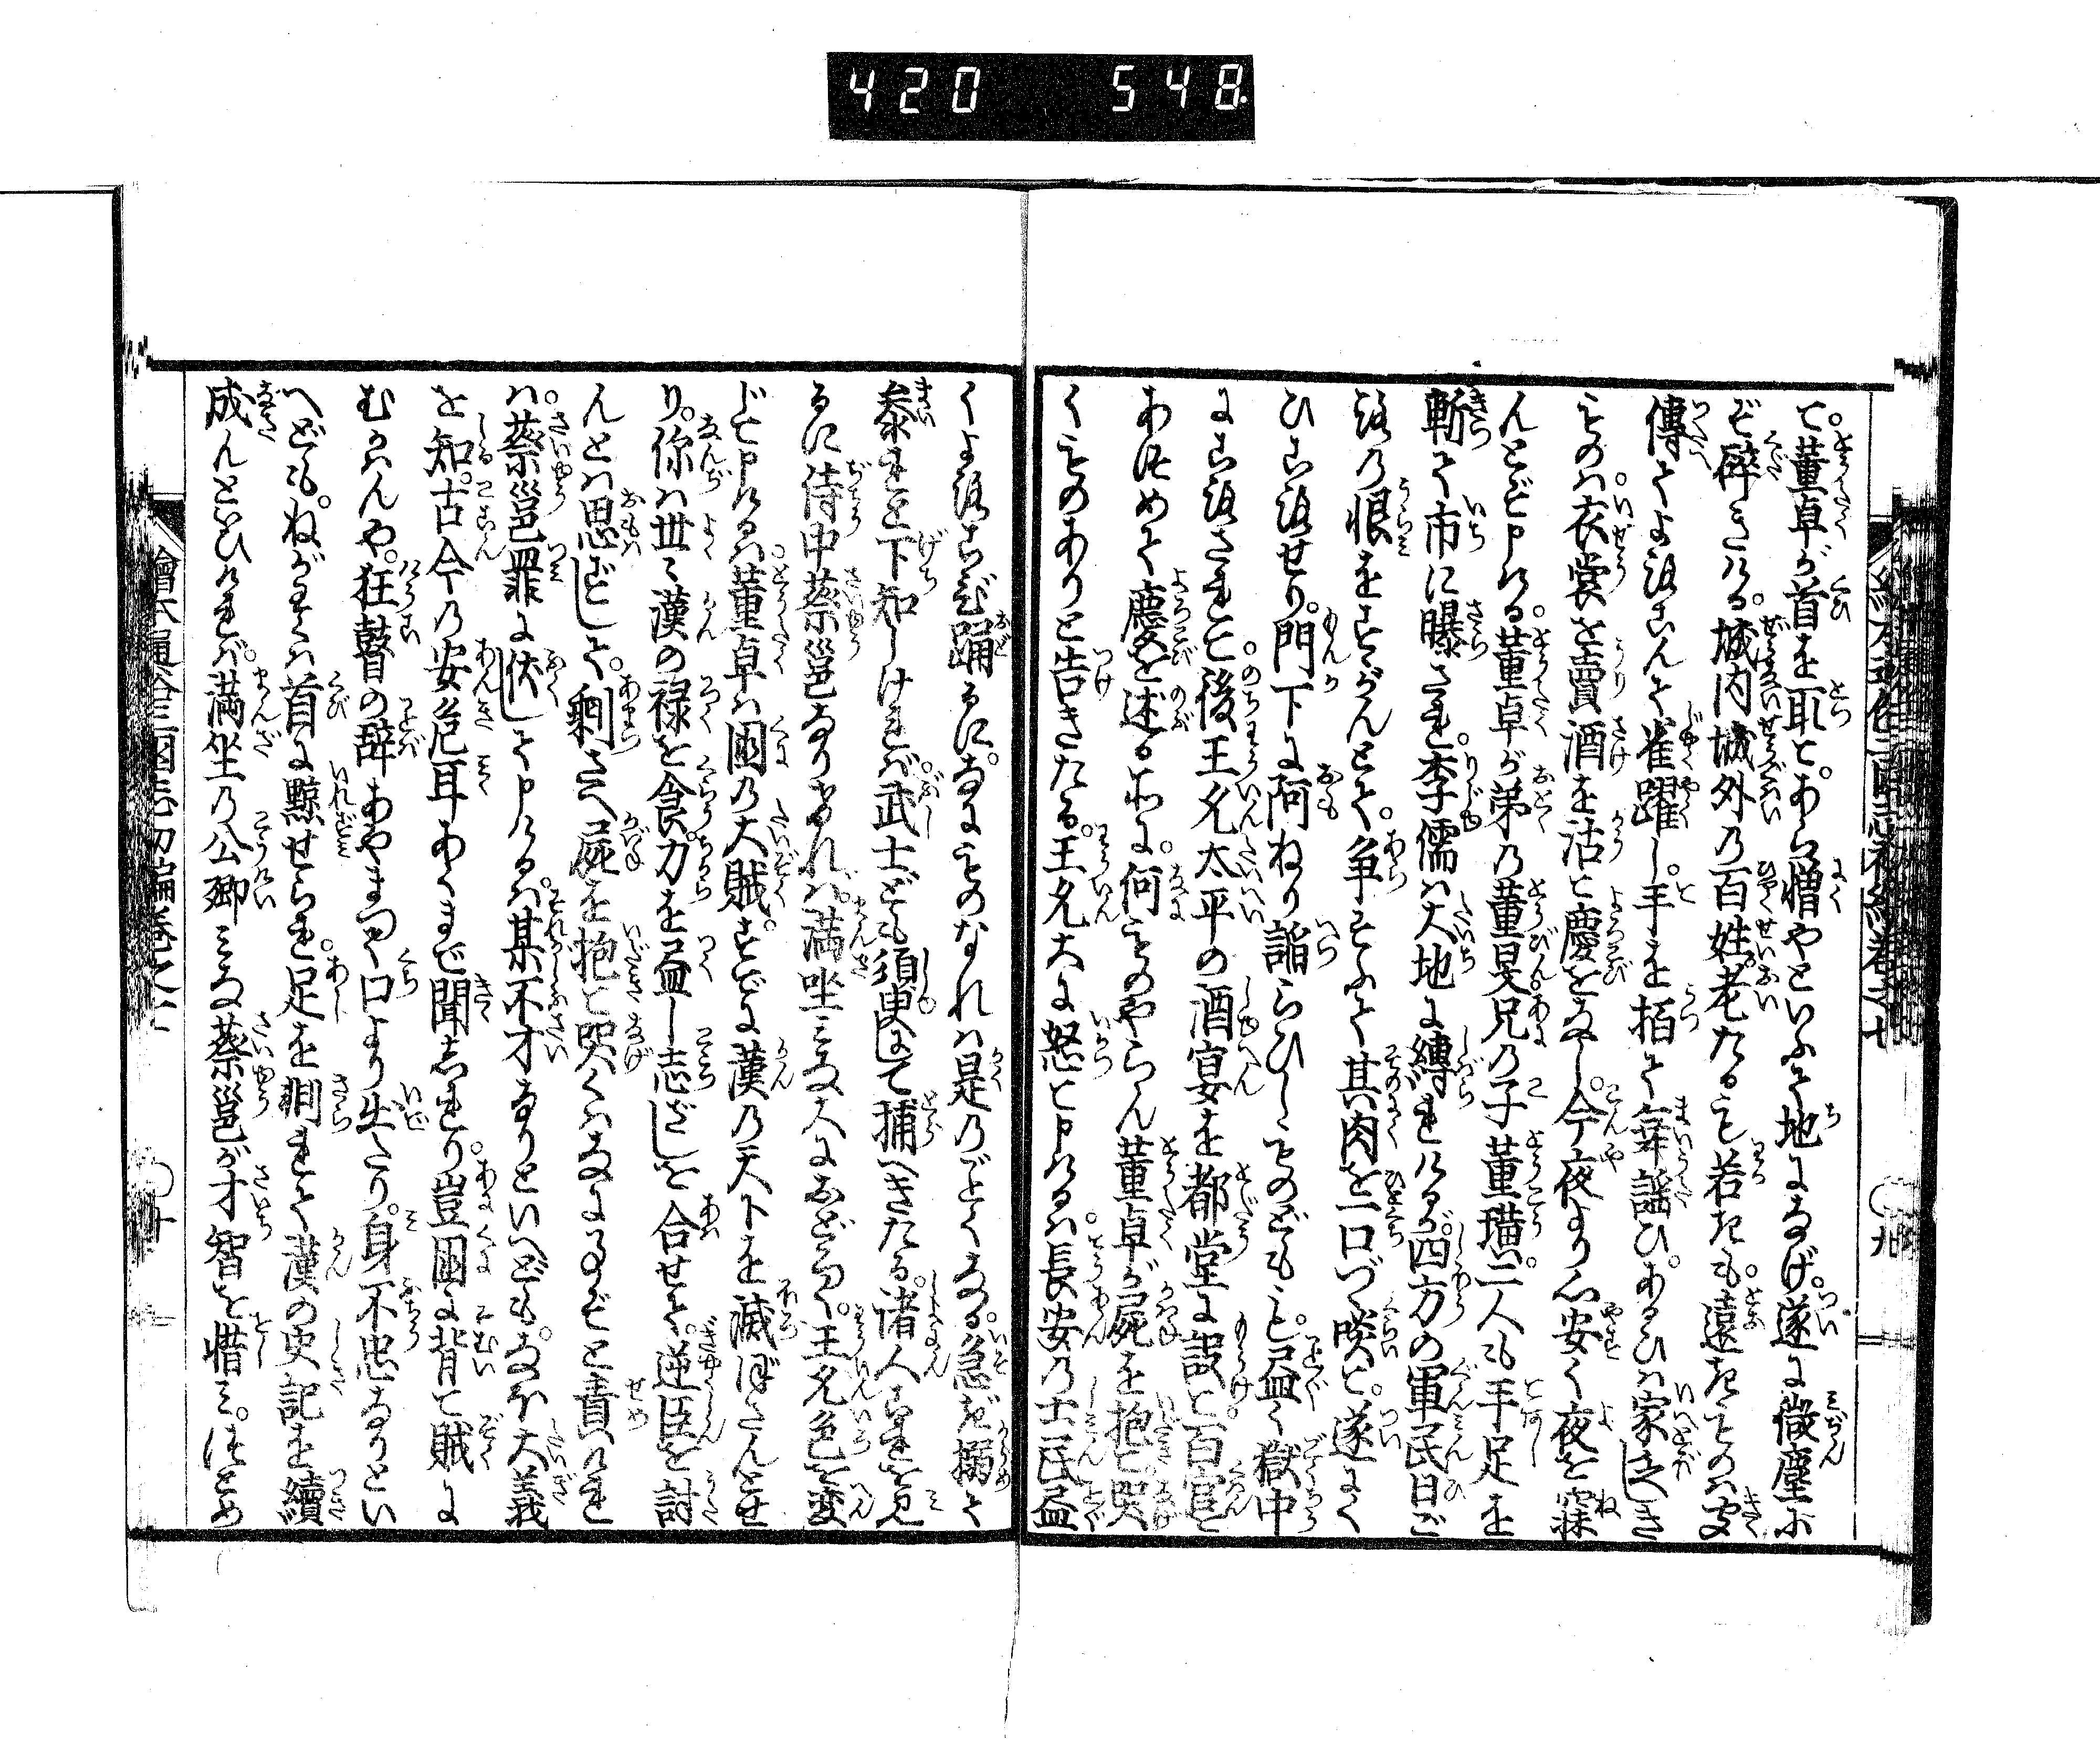 420 548
て。董卓が首を取て。あら憎やといふて地になげ。遂に微塵に
ぞ砕きける。城内城外の百姓。老たるも若きも。遠きものは聞
傳てよろこんで雀躍し。手を拍て舞謡ひ。あるひは家まづしき
ものは。衣裳を賣酒を沽て慶をなし。今夜より心安く夜を寐
んとぞ申ける。董卓が弟の董旻。兄の子董璜。二人も手足を
斬て市に曝され。李儒は大地に縛られけるが。四方の軍民日ご
ろの恨をすゝがんとて。争そふて其肉を一口づゝ啖て。遂によく
ひころせり。門下に阿ねり諂らひしものどもも。盡く獄中
にころされて。後王允太平の酒宴を都堂に設て。百官を
あつめて慶を述る所に。何ものやらん董卓が屍を抱て哭
くものありと告きたる。王允大に怒て申けるは。長安の士民盡
くよろこび踊るに。なにものなれは是のごとくなる。急ぎ搦て
参れと下知しければ。武士ども須臾にて捕へきたる。諸人これを見
るに侍中蔡邕なりければ。満坐みな大におどろく。王允色を変
じて申けるは。董卓は國の大賊。すでに漢の天下を滅ぼさんとせ
り。你は世々漢の禄を食。力を盡し志ざしを合せて。逆臣を討
んとは思ずして。剰さへ屍を抱て哭くはなにるぞと責ければ
は。蔡邕罪に伏して申けるは。某不才なりといへども。なほ大義
を知。古今の安危耳あくまで聞しれり。豈國に背て賊に
むかはんや。狂瞽の辞あやまつて口より出たり。身不忠なりとい
へども。ねがはくは首に黥せられ。足を刖れて漢の史記を續
成んといひければ。満坐の公卿みな蔡邕が才智を惜み。つとめ